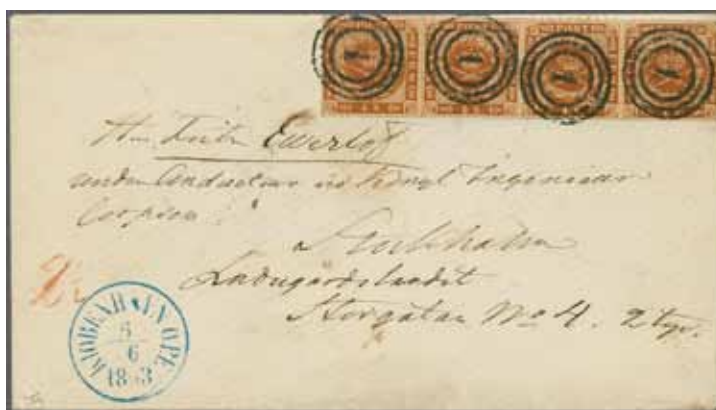 1 1 1 1
Herr Fritz Ewerlöf
under Conducteur vid Kongl Ingenieur
Corpsen.
Stockholm
Ladugårdslandet
Storgatan No 4. 2 tyr.
KIØBENHAVN O.P.E.
6
1863